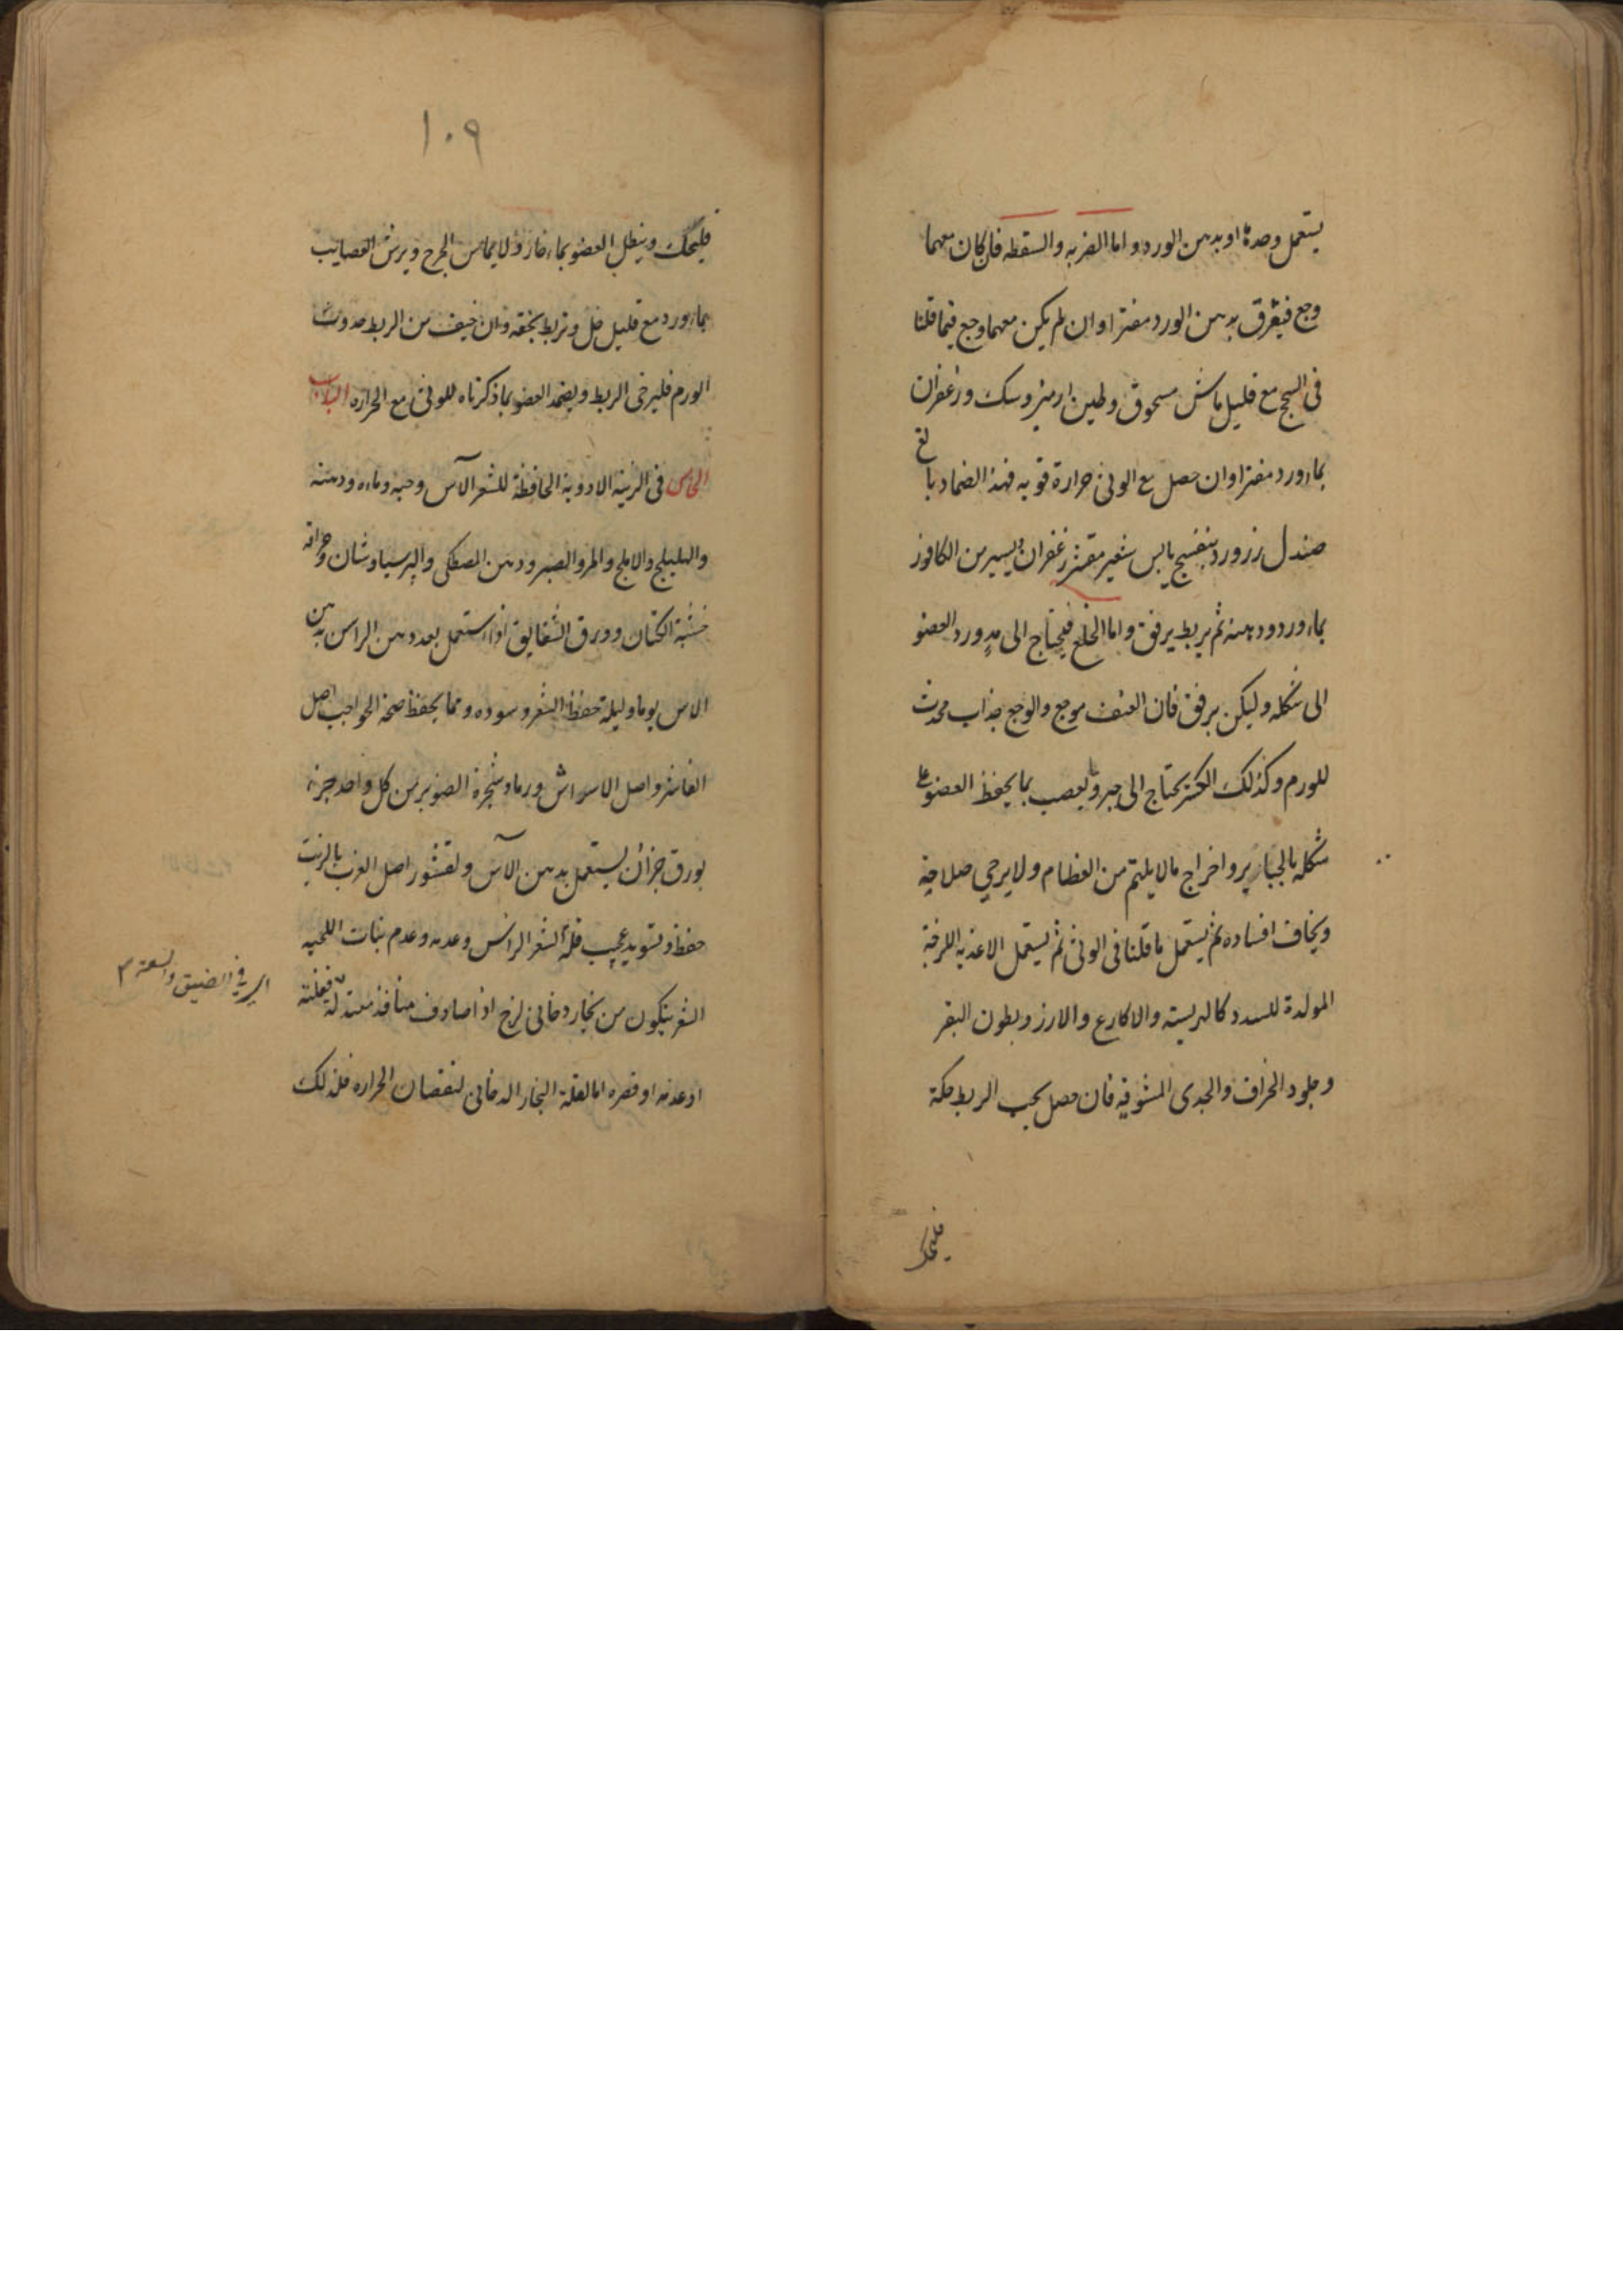 يستعمل وحدها او بدهن الورد واما الضربه والسقطه فان كان معهما
وجع فيغرق بدهن الورد مفترا وان لم يكن معهما وجع فيما قلنا
فى السحج مع قليل ماش مسحوق وطين ارمنى وسك وزعفران
بماورد مفترا وان حصل مع الوثى حرارة قويه فهذا الضماد بالغ
صندل زرورد بنفسج يابس شعير مقشر زعفران ويسير من الكافور
بماورد ودهنه ثم يربط برفق واما الخلع فيحتاج الى مد ورد العضو
الى شكله وليكن برفق فان العنف موجع والوجع جذاب محدث
للورم وكذلك الكسر يحتاج الى جبر ويعصب بما يحفظ العضو على
شكله بالجباير واخراج مالا يلتم من العظام ولا يرجى صلاحه
ويخاف افساده ثم يستعمل ما قلنا فى الوثى ثم يستعمل الاغذيه اللزجة
المولدة للسدد كالهريسه والاكارع والارز وبطون البقر
وجلود الخراف والجدى المشويه فان حصل بحب الربط حكة
فليحك
١٠٩
فليحك وينطل العضو بماء فاز ولا يماس الجرح ويرش العصايب
بماورد مع قليل خل وتربط بخفه وان خيف من الربط حدوث
الورم فليرخى الربط ويضمد العضو بما ذكرناه للوثى مع الحراره الباب
الخامس فى الزينه الادوية الحافظة للشعر الآس وحبه وماءه ودهنه
والهليلج والاملج والمر والصبر ودهن المصطكى والبرسياوشان وحراقه
خشبة الكتان وورق الشقايق اذا استعمل بعد دهن الراس بدهن
الاس يوما وليلة حفظ الشعر وسوده ومما يحفظ صحة الحواجب اصل
الفاشرا واصل الاسراش ورماد شجرة الصنوبر من كل واحد جزء
بورق جزان يستعمل بدهن الآس ولقشور اصل الغرب بالزيت
حفظ وتسويد عجيب قلة الشعر الراس وعدمه وعدم نبات اللحيه
الشعر يتكون من بخار دخانى لزج اذا صادف منافذ معتدلة فقلته
او عدمه او قصره اما لقلة البخار الدخانى لنقصان الحراره فلذلك
فى الضيق والسعة